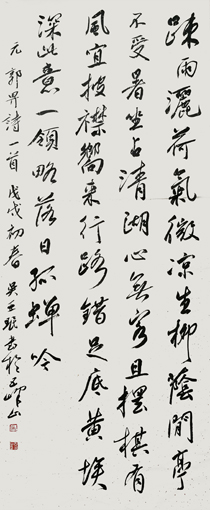 疎雨灑荷氣微凉生柳陰閒亭
不受暑坐占清湖心無客且擺棋有
風宜披襟嚮來行路錯足底黄埃
深此意一領略落日孤蟬吟
元郭畀詩一首戊戌初春吳書於山